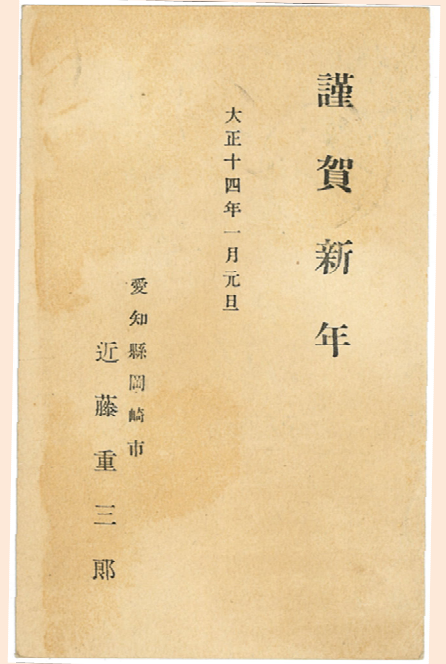 謹賀新年
大正十四年一月元旦
愛知縣岡崎市
近藤重三郎